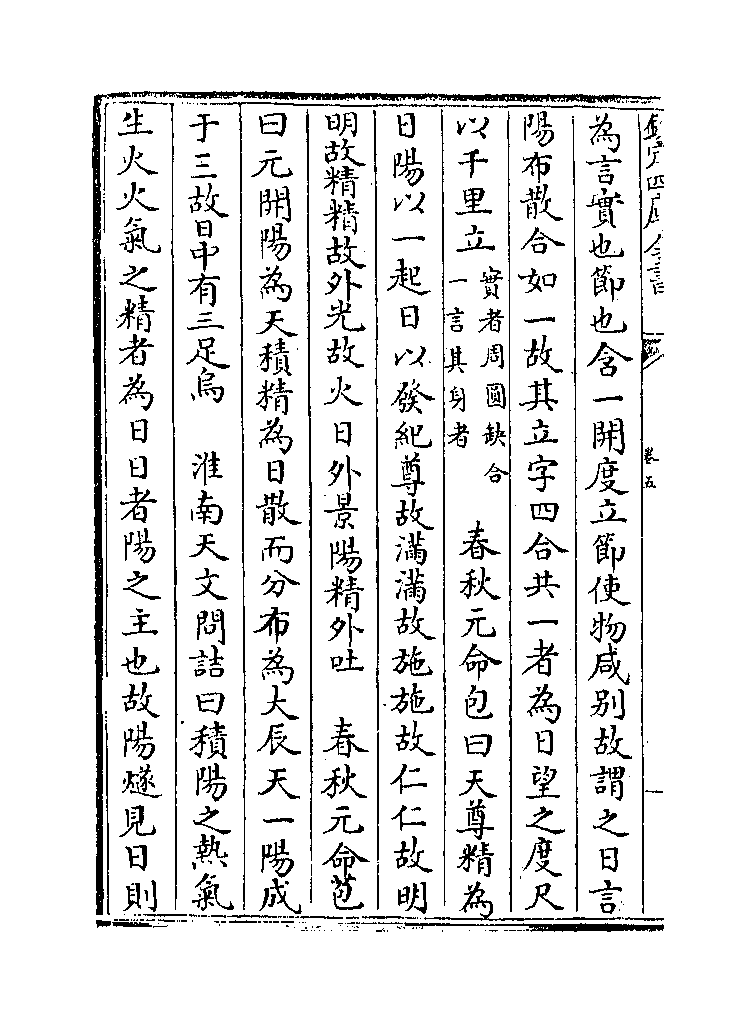 欽定四庫全書
卷五
為言實也節也含一開度立節使物咸别故謂之日言
陽布散合如一故其立字四合共一者為日望之度尺
以千里立實者周圓缺合一言其身者　春秋元命包曰天尊精為
日陽以一起日以發紀尊故滿滿故施施故仁仁故明
明故精精故外光故火日外景陽精外吐　春秋元命苞
曰元開陽為天積精為日散而分布為大辰天一陽成
于三故日中有三足烏　淮南天文問詰曰積陽之熱氣
生火火氣之精者為日日者陽之主也故陽燧見日則